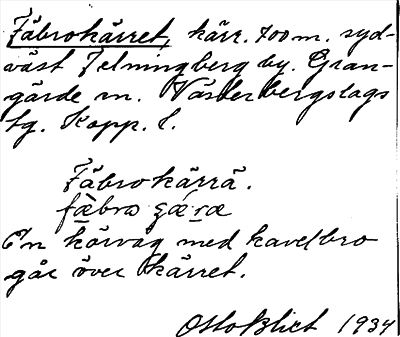 Fäbrokärret, kärr. 700 m. syd-
väst Felmingberg by. Gran-
gärde sn. Västerbergslags
tg. Kopp. l.
Fäbrokärrä.
En körväg med kavelbro
går över kärret.
Otto Blixt 1934